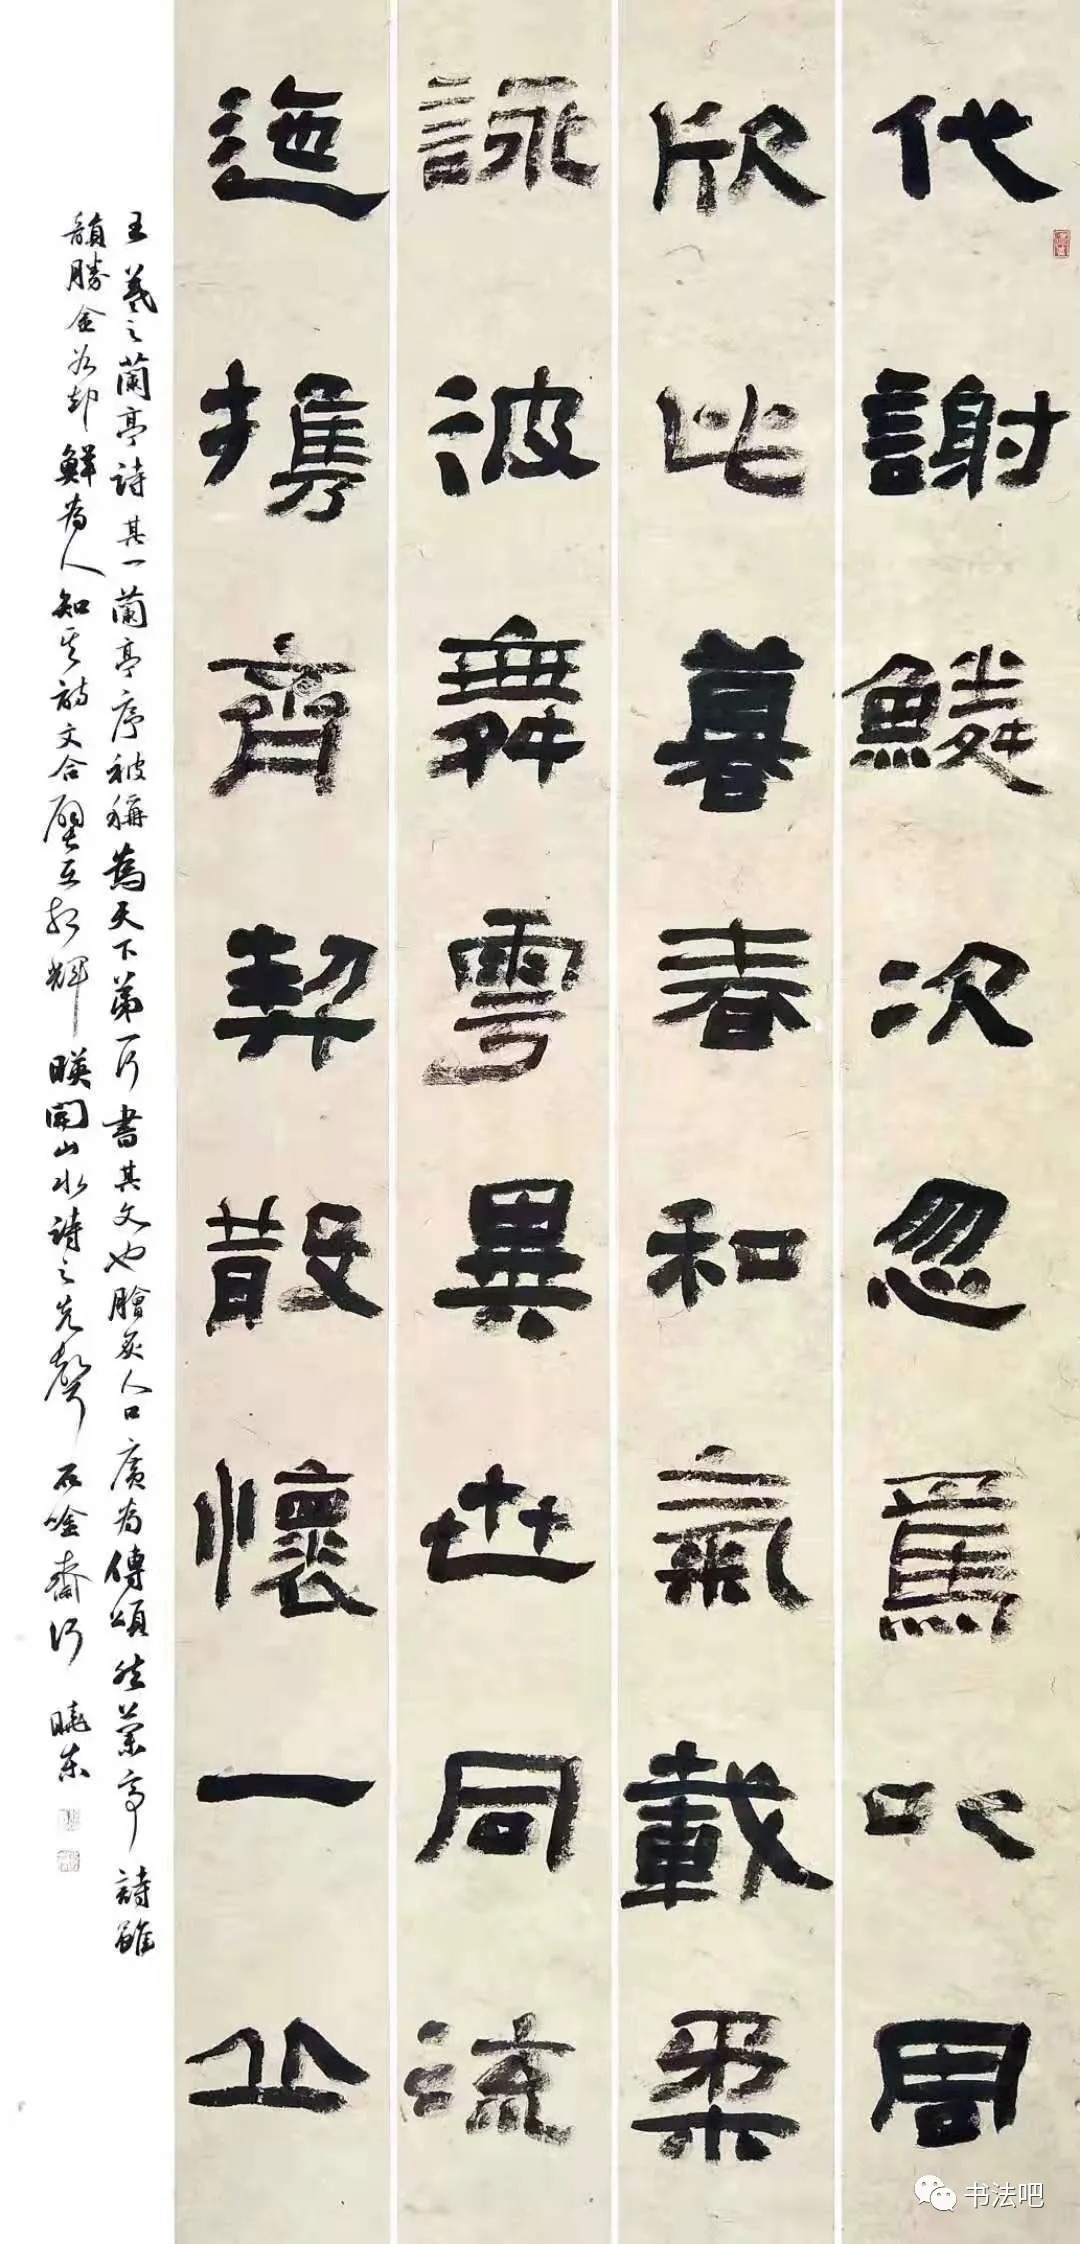 代謝鱗次忽焉以周
欣此暮春和氣載柔
詠彼舞雩異世同流
迤携齊契散懷一丘
王羲之蘭亭詩其一蘭亭序被稱為天下第一行書其文也膾炙人口廣為傳頌然蘭亭詩雖
韻勝金谷却鮮為人知其詩文合璧互相輝暎開山水詩之先聲 石唫齋行 曉東
书法吧